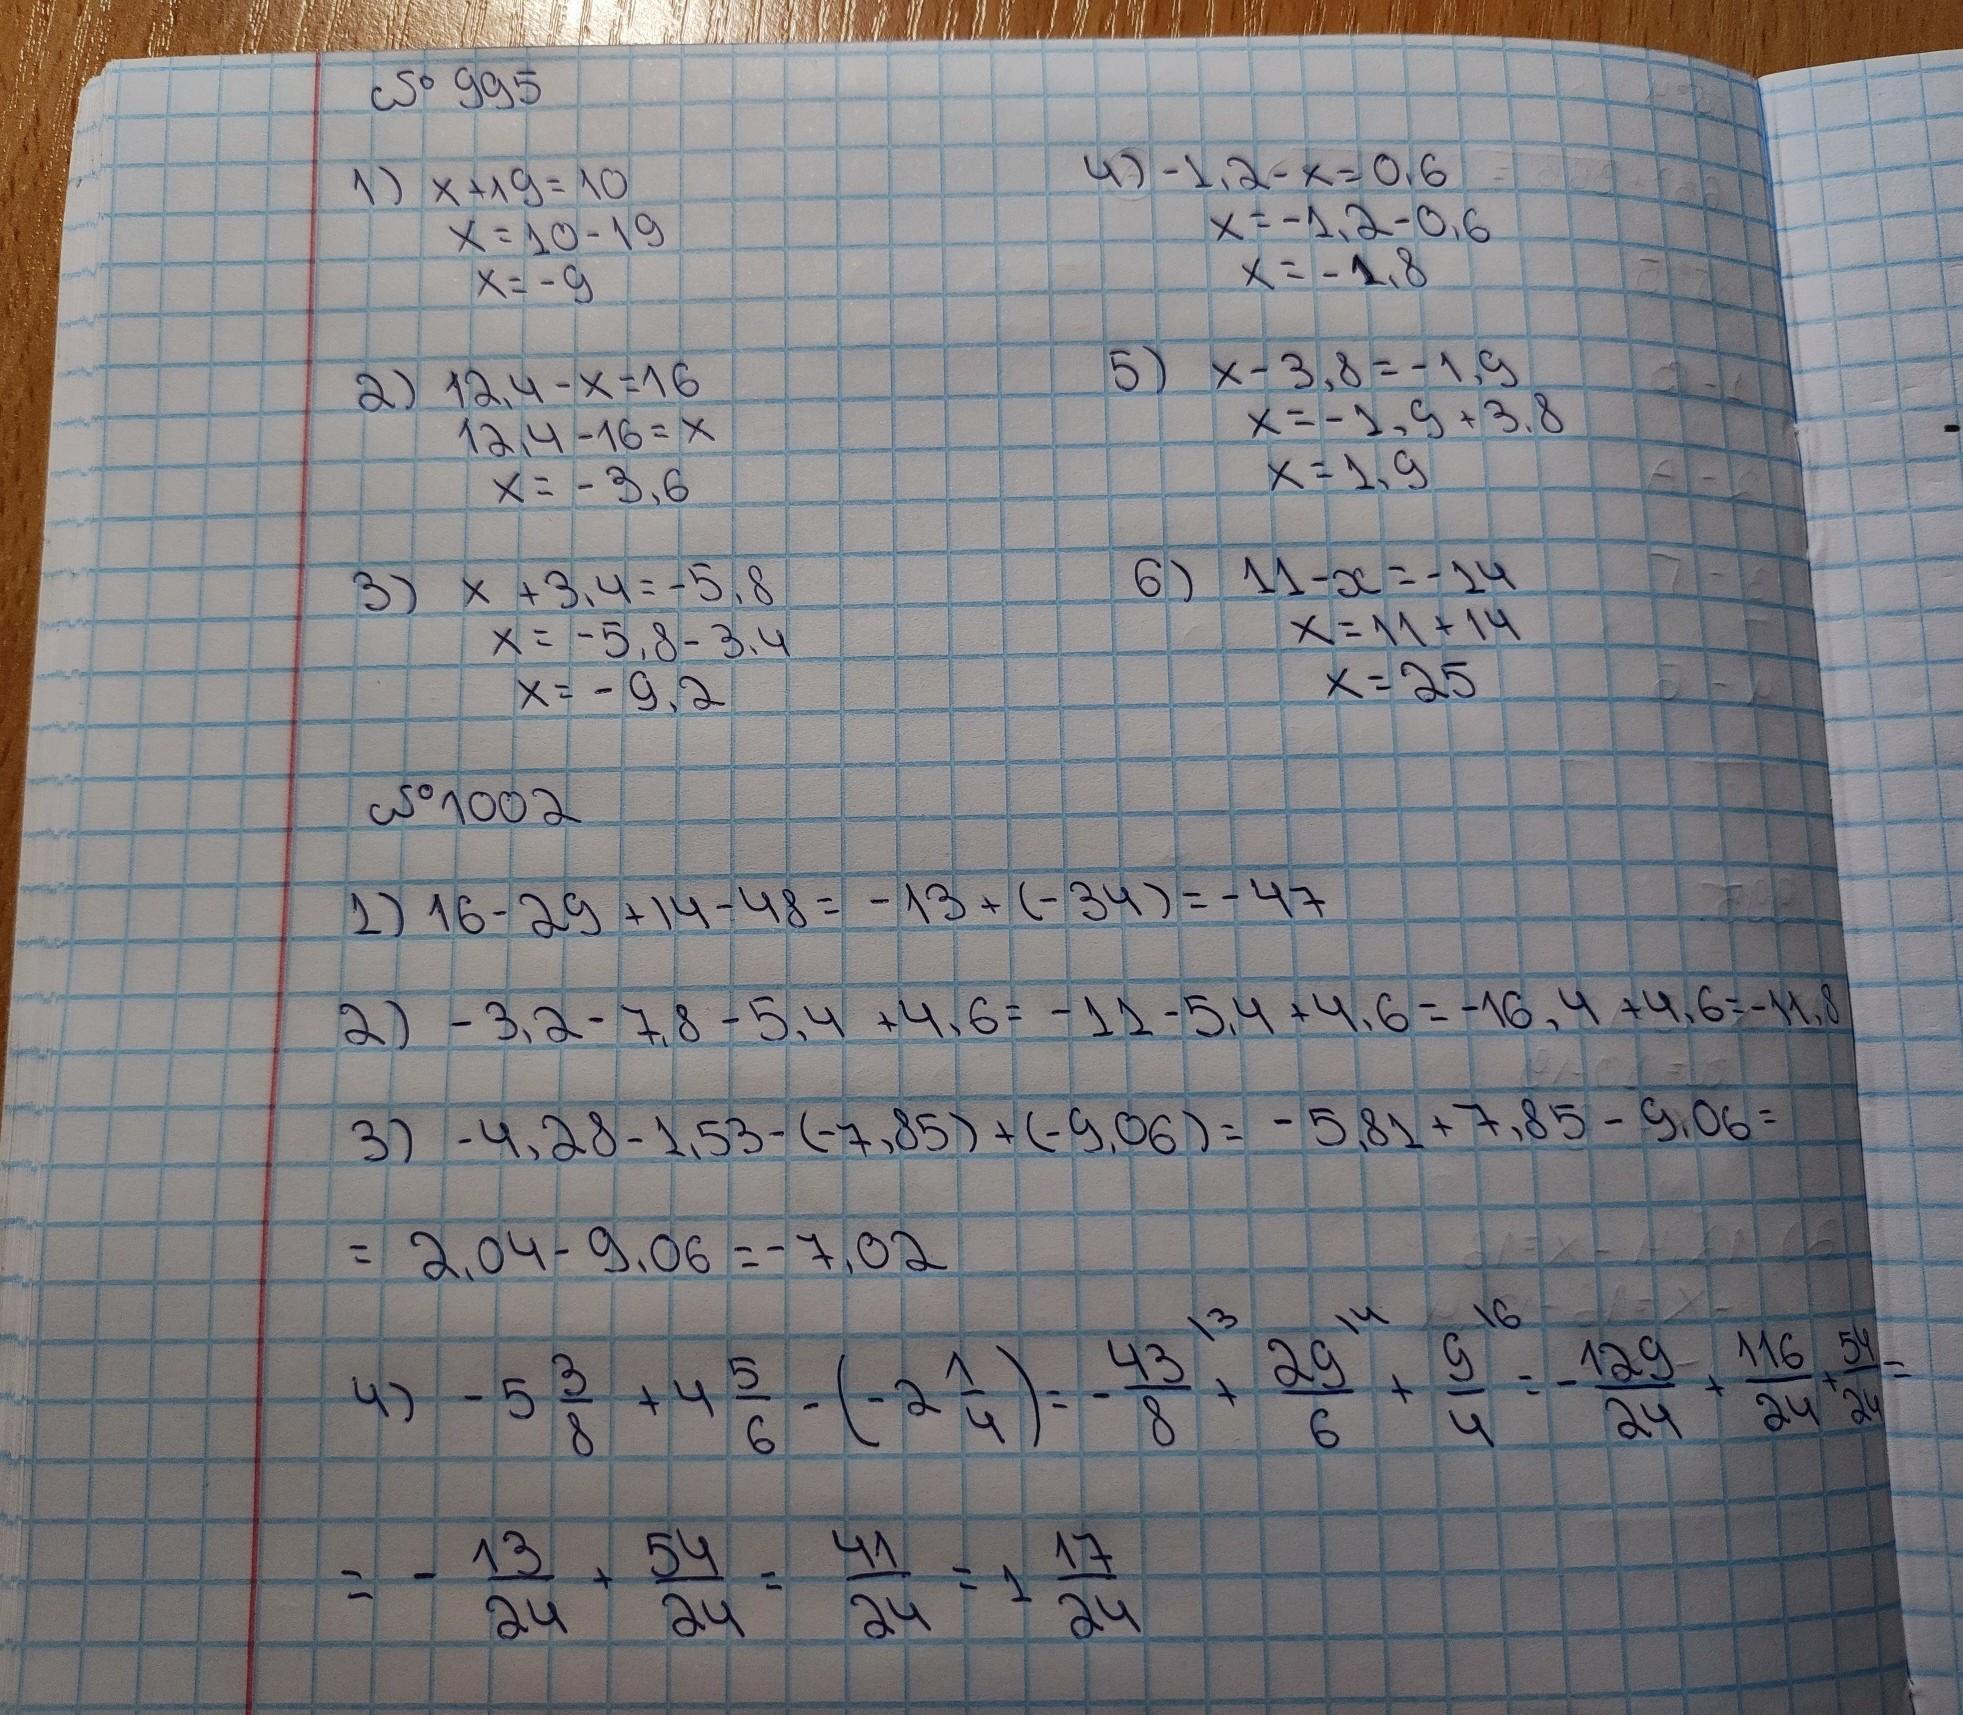 № 995
1) x+19=10
x=10-19
x=-9
2) 12,4-x=16
12,4-16=x
x=-3,6
3) x+3,4=-5,8
x=-5,8-3,4
x=-9,2
4) -1,2-x=0,6
x=-1,2-0,6
x=-1,8
5) x-3,8=-1,9
x=-1,9+3,8
x=1,9
6) 11-x=-14
x=11+14
x=25
№ 1002
1) 16-29+14-48=-13+(-34)=-47
2) -3,2-7,8-5,4+4,6=-11-5,4+4,6=-16,4+4,6=-11,8
3) -4,28-1,53-(-7,85)+(-9,06)=-5,81+7,85-9,06=
=2,04-9,06=-7,02
4) -5 3/8 + 4 5/6 - (-2 1/4) = - 43/8 \3 + 29/6 \4 + 9/4 \6 = - 129/24 + 116/24 + 54/24 =
= - 13/24 + 54/24 = 41/24 = 1 17/24